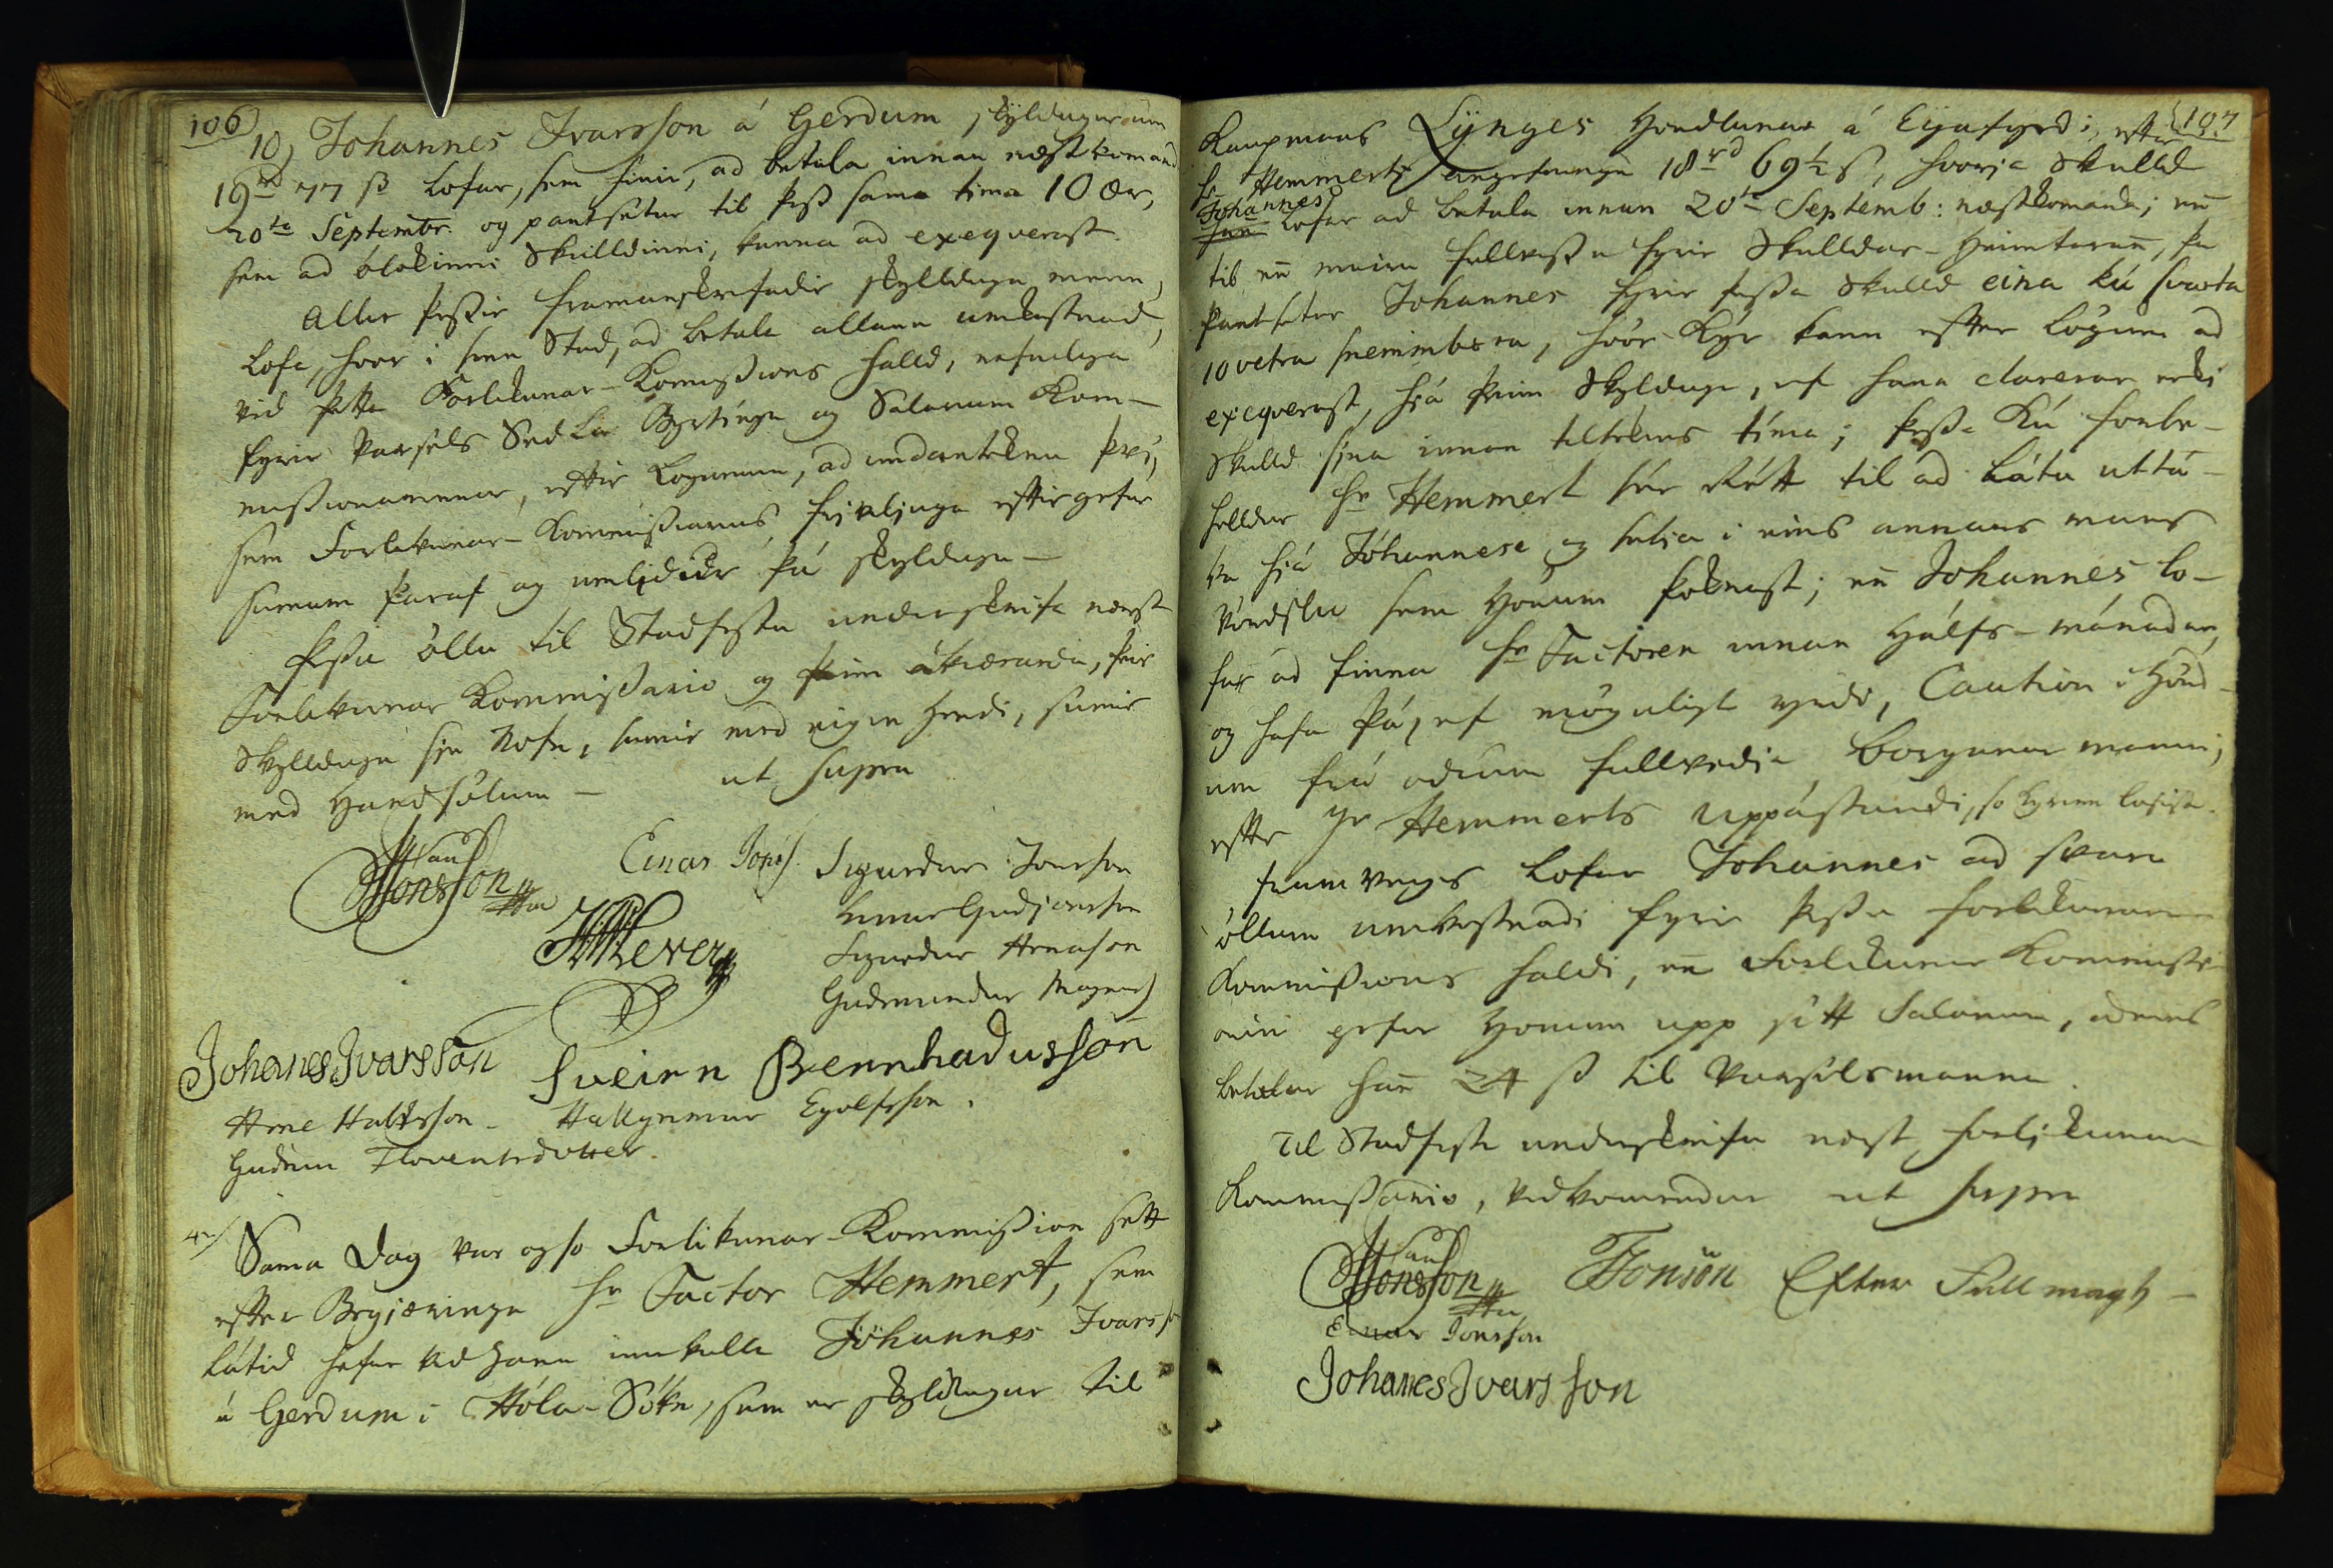 106
10) Johannes Ivarsson á Gerdum skyldugur um
19rd 77 ß lofar, sem hinir, ad betala innan næstkomand
20ta Septembr. og pantsetur til þess sama tima 10 Ær,
sem ad ólokinni Skulldinni, kunna ad exeqverast.
Aller þessir framanskrifadir skylldugu menn,
lofa, hvor i sinn Stad, ad betala allann umkostnad,
vid þetta Forlikunar-Komissions halld, nefnilega
fyrir Varsels Sedla Byrtingu og Salarium Kom-
missionarennar, eftir Logunum, ad undanteknu því,
sem Forlikunar-Kommissarius friviljuga eftirgefur
sumum þaraf og umlididur þá skyldugu —
Þessu öllu til Stadfestu underskrifa næst
Forlikunar Kommissario og þeim ákiærandi, þeir
Skylldugu sin Nofn, sumir med eigin Hendi, sumir
med Handsölum — ut supra
Jonsson
Einar Jonss. Sigurdur Jonsson
Einar Gudjonsson
Sigurdur Arnason
Gudmundur Magnuss
Johanes Ivarsson Sveirn Bernhadusson
Arne Hallsson - Hallgrimur Eyolfsson.
Gudrun Floventsdotter.
Sama Dag var og so Forlikunar-Kommission sett
efter Begiæringu hr Factor Hemmert, sem
látid hefur Vidkomi innkalla Jóhannes Ivarsso
á Gerdum i Hóla-Sókn, sem er skyldugur til
107
Kaupmans Lynges Hondlunar á Eyafyrdi, efter
hr Hemmerts angefningu 18rd 69½ ß, hvoria Skulld
Johannes
hann lofar ad betala innan 20ta Septemb: næstkomandi; enn
til enn meiri fullvissu fyrir Skulldar-Heimtunni, þa
pantsetur Johannes fyrir þessa Skulld eina kú svarta
10 vetra snemmbæra, hvor Kyr kann efter lögum ad
exeqverast, hiá þeim Skylduga, ef hann clarerar ecki
Skulld sina innan tiltekins tíma; þessa Kú forbe-
helldur hr Hemmert sér Rétt til ad láta uttá-
ka hiá Jóhannese og setja i eins annars mans
Vördslu sem Honum þóknast; enn Johannes lo-
far ad finna hr Factoren innan Hálfs-mánadar,
og hafa þá, ef mögulegt verdi, Caution i Hönd-
um frá odrum fullvedia borgunar manni,
efter Hr Hemmerts uppástandi, so hynum lofist.
framveigis lofar Johannes ad svara
öllum umkostnadi fyrir þessu forlikunar
Kommissions haldi, enn Forlikunar Kommissi-
onin gefur Honum upp sitt Salarium, adeins
betalar hann 24 ß til Varselsmanna.
Til Stadfestu underskrifa næst forlikunar
Kommissario, vidkomendur ut supra
Jonsson Jonsön Efter Fullmagt —
Einar Jonsson
Johanes Ivarsson